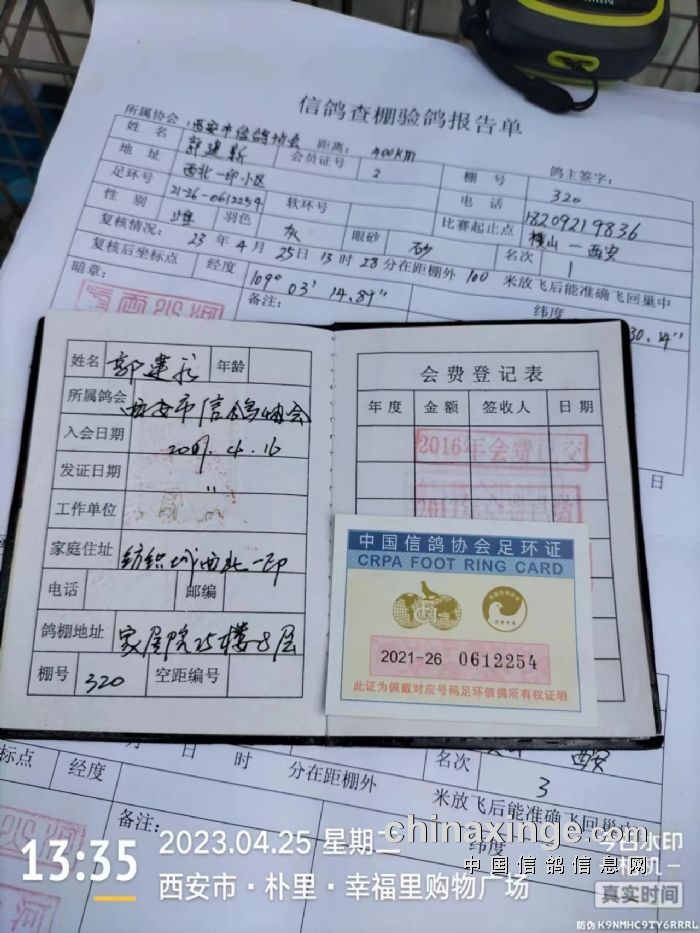 信鸽查棚验鸽报告单
所属协会:西安市信鸽协会 距离: 400km 鸽主签字:
姓名 郭建新 会员证号 2 棚号 320
地址 西北一印小区 电话 18209219836
足环号 21-26-0612254 软环号 比赛起止点 横山一西安
性别 雌 羽色 灰 眼砂 砂 名次 1
复核情况: 23年4月25日13时28分在距棚外100米放飞后能准确飞回巢中
复核后坐标点 经度 109° 03' 14.89" 纬度 30.14"
暗章: 备注:
姓名 郭建新 年龄
所属鸽会 西安市信鸽协会
入会日期 2009.4.16
发证日期 "
工作单位
家庭住址 纺织城西北一印
电话 邮编
鸽棚地址 家属院25楼8层
棚号 320 空距编号
会费登记表
年度 金额 签收人 日期
2016年会费已交
日
中国信鸽协会足环证
CRPA FOOT RING CARD
2021-26 0612254
此证为佩戴对应号码足环信鸽所有权证明
西安
名次 3
月 日 时 分在距棚外 米放飞后能准确飞回巢中
标点 经度 纬度
备注:
13:35
2023.04.25 星期二
西安市·朴里·幸福里购物广场
chinaxinge.com
中国信鸽信息网
今日水印
相机
真实时间
防伪 K9NMHC9TY6RRRL